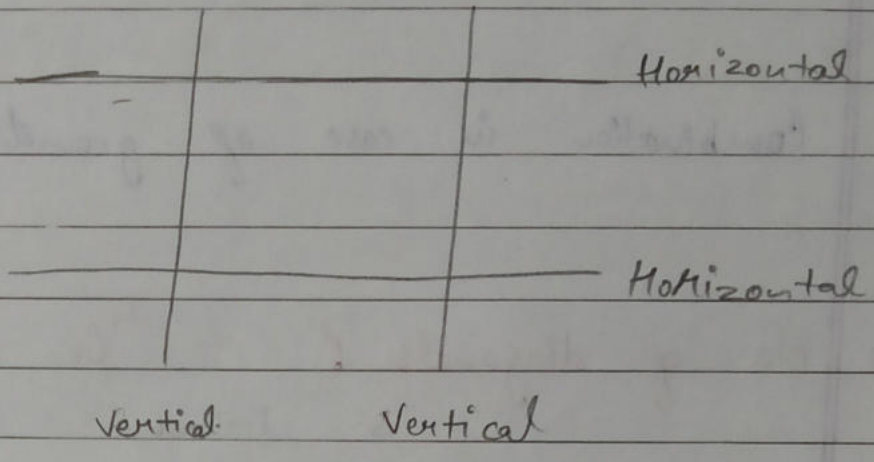 Horizontal
Horizontal
Vertical Vertical